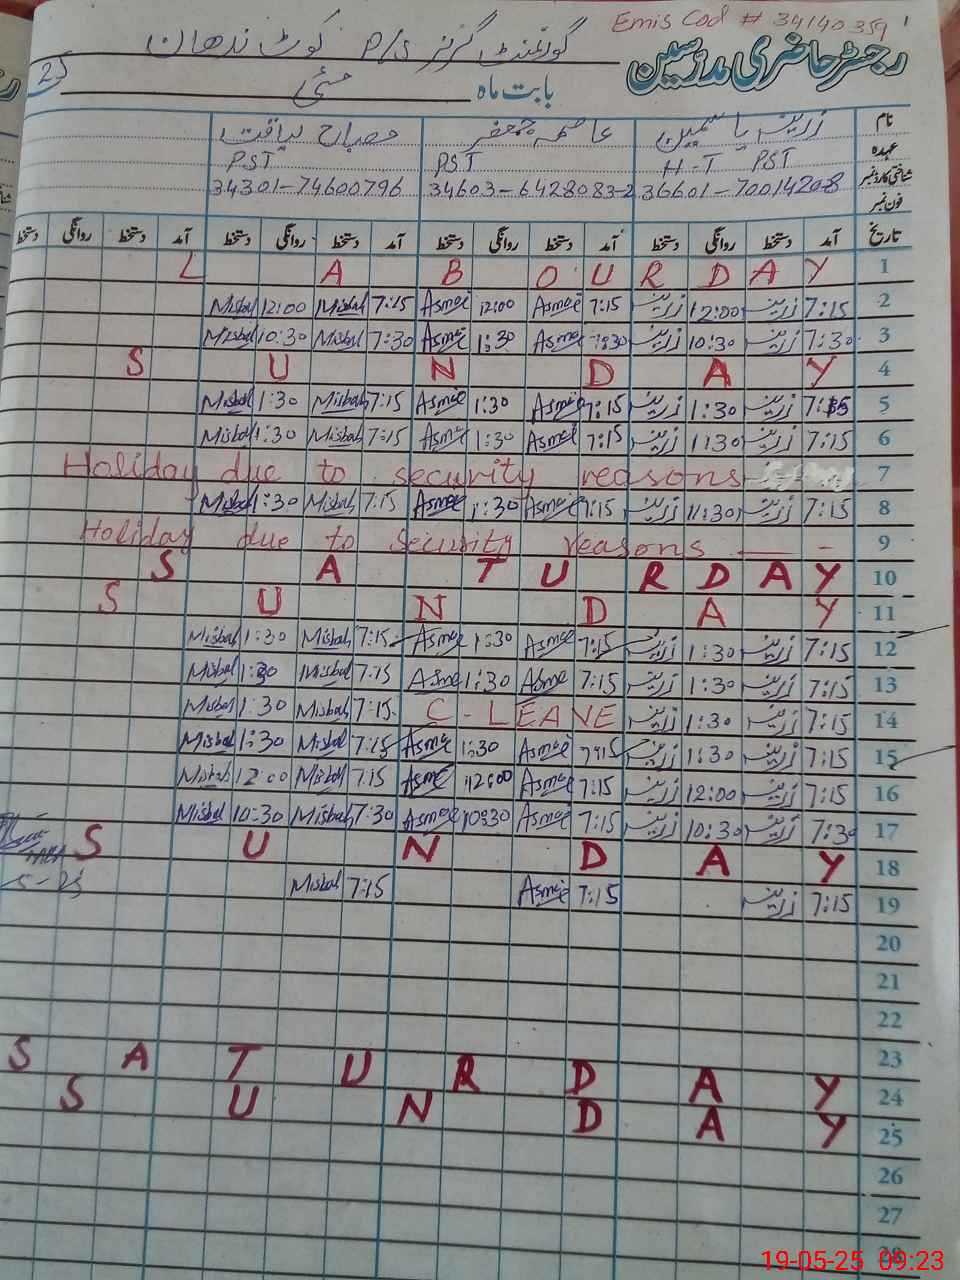 Emis Cod # 34140359
رجسٹر حاضری مدرسین
گورنمنٹ گرلز P/S کوٹ ندھان
بابت ماہ مئی 25
نام زرینہ یاسمین عاصمہ جعفر مصباح لیاقت
عہدہ H-T PST PST PST
شناختی کارڈ نمبر 36601-70014208 34603-6428083-2 34301-74600796
فون نمبر
تاریخ آمد دستخط روانگی دستخط آمد دستخط روانگی دستخط آمد دستخط روانگی دستخط آمد دستخط روانگی دستخط
L A B O U R D A Y 1
Misbah 12:00 Misbah 7:15 Asma 12:00 Asma 7:15 زرینہ 12:00 زرینہ 7:15 2
Misbah 10:30 Misbah 7:30 Asma 1:30 Asma 7:30 زرینہ 10:30 زرینہ 7:30 3
S U N D A Y 4
Misbah 1:30 Misbah 7:15 Asma 1:30 Asma 7:15 زرینہ 1:30 زرینہ 5
Misbah 1:30 Misbah 7:15 Asma 1:30 Asma 7:15 زرینہ 1:30 زرینہ 7:15 6
Holiday due to security reasons 7
Misbah 1:30 Misbah 7:15 Asma 1:30 Asma 7:15 زرینہ 11:30 زرینہ 7:15 8
Holiday due to security reasons 9
S A T U R D A Y 10
S U N D A Y 11
Misbah 1:30 Misbah 7:15 Asma 1:30 Asma 7:15 زرینہ 1:30 زرینہ 7:15 12
Misbah 1:30 Misbah 7:15 Asma 1:30 Asma 7:15 زرینہ 1:30 زرینہ 7:15 13
Misbah 1:30 Misbah 7:15 C-LEAVE زرینہ 1:30 زرینہ 7:15 14
Misbah 1:30 Misbah 7:15 Asma 1:30 Asma 7:15 زرینہ 1:30 زرینہ 7:15 15
Misbah 12:00 Misbah 7:15 Asma 12:00 Asma 7:15 زرینہ 12:00 زرینہ 7:15 16
Misbah 10:30 Misbah 7:30 Asma 10:30 Asma 7:15 زرینہ 10:30 زرینہ 7:30 17
S U N D A Y 18
Misbah 7:15 Asma 7:15 زرینہ 7:15 19
20
21
22
23
S A T U R D A Y 24
S U N D A Y 25
26
27
28
19-05-25 09:23